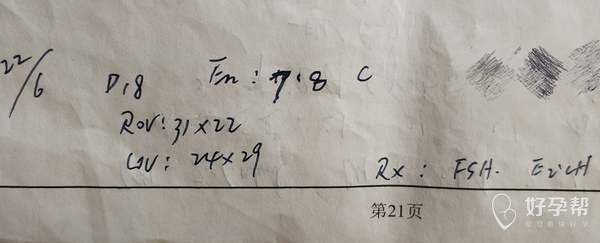 22/6 D18 En: 7.8 C
ROV: 31×22
LOV: 24×29
Rx: FSH. E2. LH
第21页
好孕帮